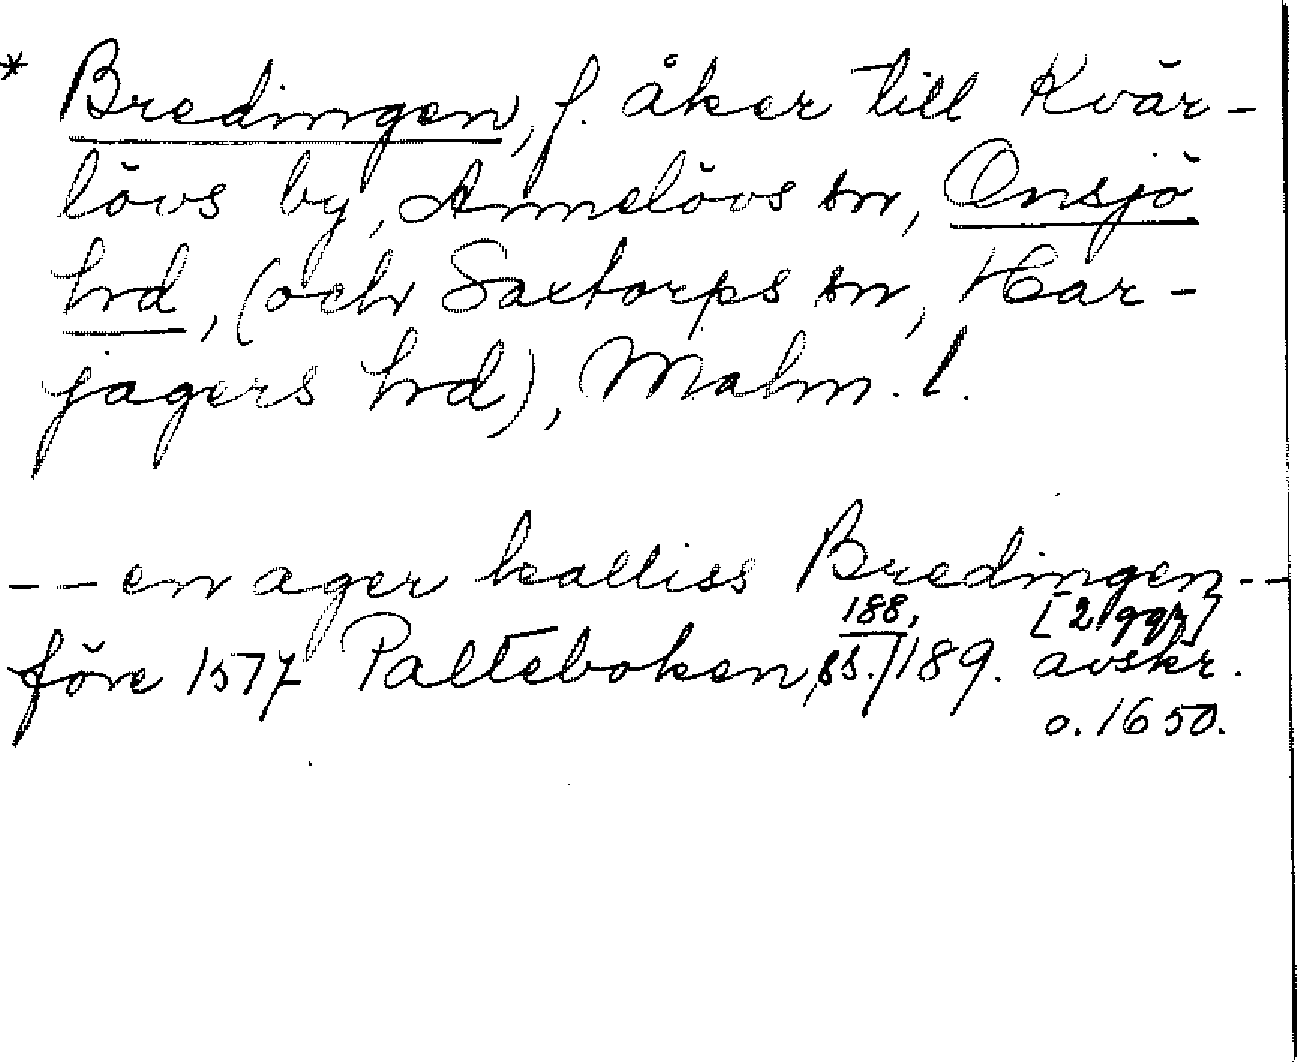 * Bredingen, f. åker till Kvär-
lövs by, Annelövs sn, Onsjö
hrd, (och Saxtorps sn, Har-
jagers hrd), Malm. l.
-- en ager kalliss Bredingen --
[2 ggr]
före 1577 Palteboken, ss. 188, 189. avskr.
o. 1650.